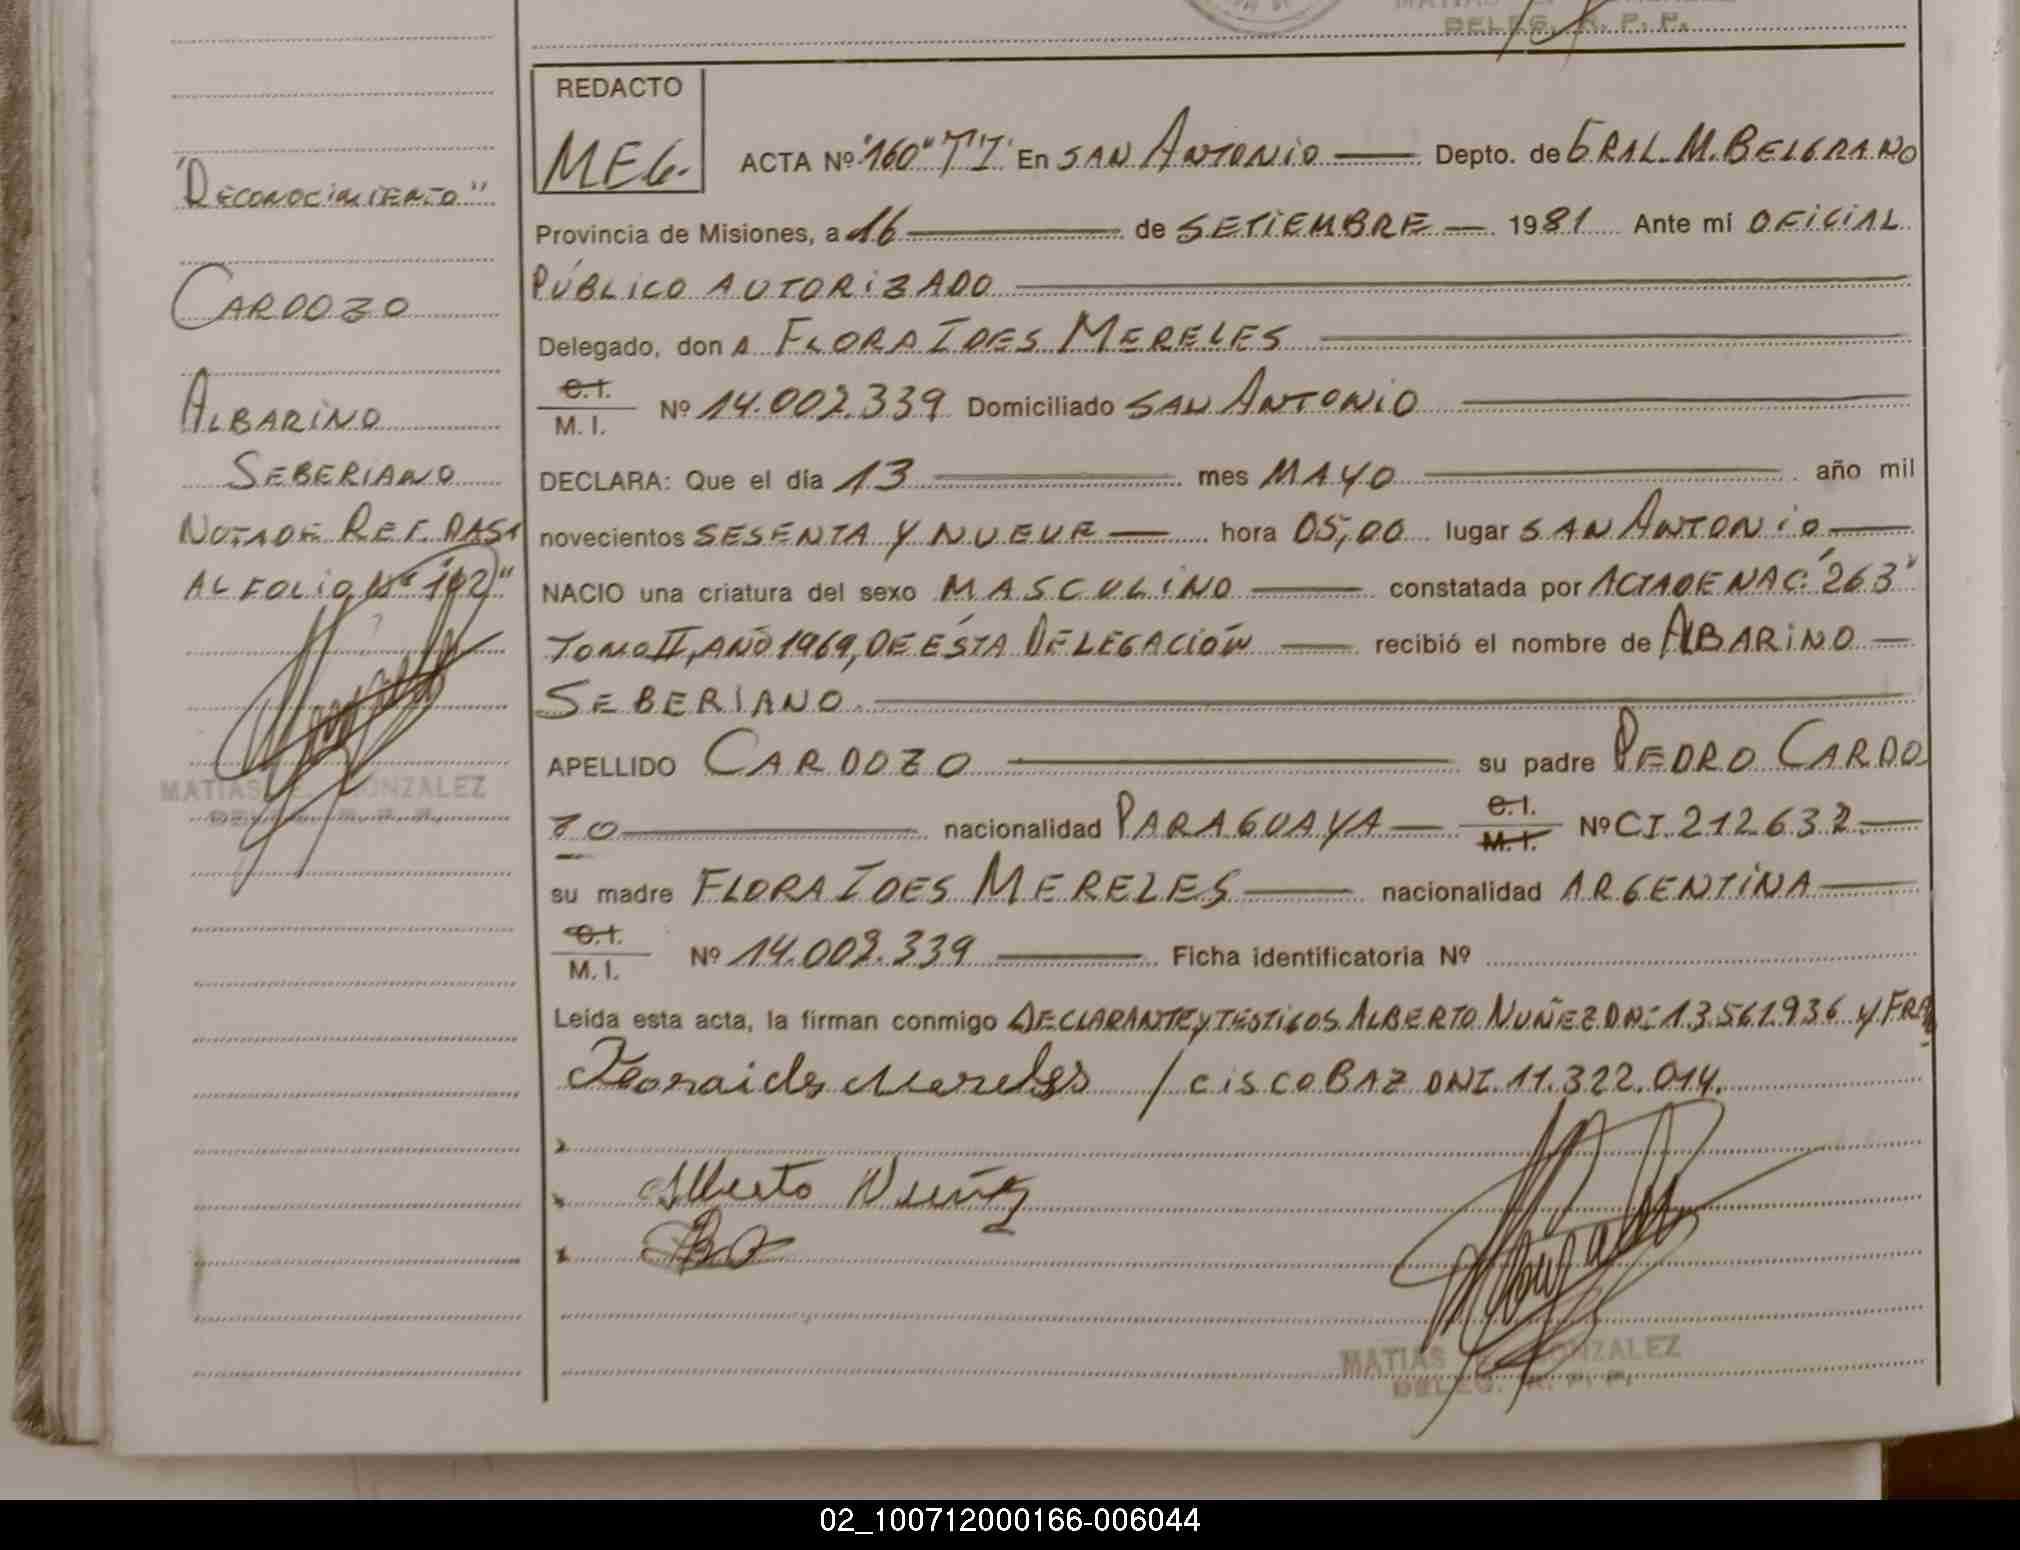 MATIAS E. GONZALEZ
DELEG. R. P. P.
"RECONOCIMIENTO"
CARDOZO
ALBARINO
SEBERIANO
NOTA DE REF. PASA
AL FOLIO Nº "192"
MATIAS E. GONZALEZ
DELEG. R. P. P.
REDACTO
MEG.
ACTA Nº "160" TºI. En SAN ANTONIO Depto. de GRAL. M. BELGRANO
Provincia de Misiones, a 16 de SETIEMBRE 1981 Ante mí OFICIAL
PÚBLICO AUTORIZADO
Delegado, don A FLORA IDES MERELES
C.I.
M. I. Nº 14.002.339 Domiciliado SAN ANTONIO
DECLARA: Que el día 13 mes MAYO año mil
novecientos SESENTA Y NUEVE hora 05,00 lugar SAN ANTONIO
NACIO una criatura del sexo MASCULINO constatada por ACTA DE NAC. "263"
TOMO II, AÑO 1969, DE ÉSTA DELEGACIÓN recibió el nombre de ALBARINO
SEBERIANO
APELLIDO CARDOZO su padre PEDRO CARDO
ZO nacionalidad PARAGUAYA C.I. M.I. Nº CI. 212.632
su madre FLORA IDES MERELES nacionalidad ARGENTINA
C.I.
M. I. Nº 14.002.339 Ficha identificatoria Nº
Leída esta acta, la firman conmigo DECLARANTE Y TESTIGOS ALBERTO NUÑEZ DNI 13.561.936 Y FRA
Floraides Mereles / CISCO BAZ DNI. 11.322.014.
Alberto Nuñez
MATIAS E. GONZALEZ
DELEG. R. P. P.
02_100712000166-006044